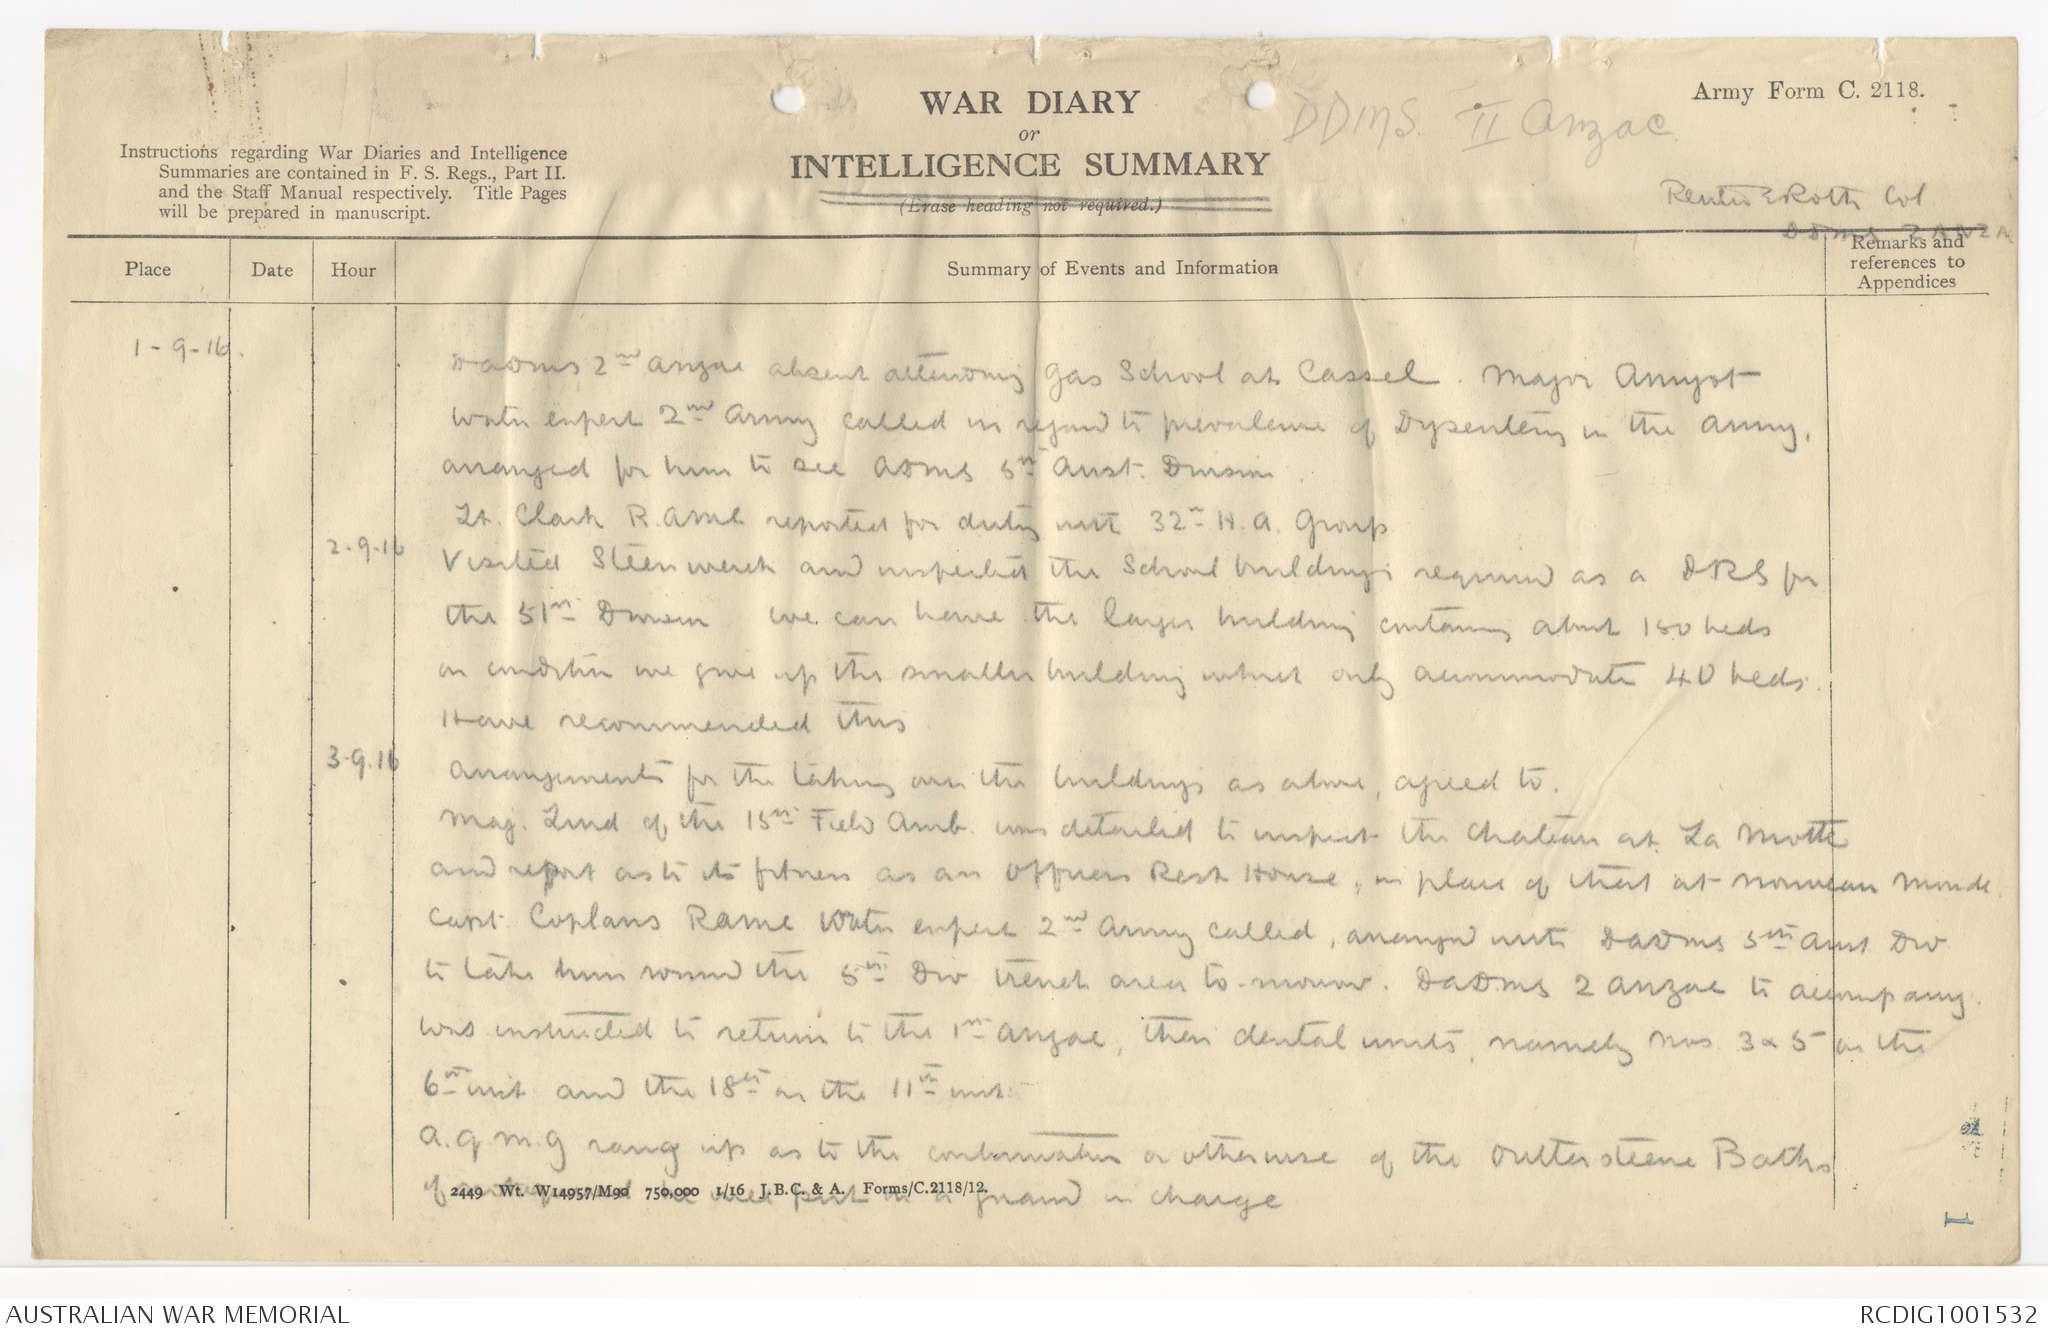 WAR DIARY
or
INTELLIGENCE SUMMARY
(Erase heading not required.)
Army Form C. 2118.
DDMS. II Anzac
Instructions regarding War Diaries and Intelligence
Summaries are contained in F. S. Regs., Part II.
and the Staff Manual respectively. Title Pages
will be prepared in manuscript.
Reuter E Roth Col
DDMS 2 ANZA
Place
Date
Hour
Summary of Events and Information
Remarks and
references to
Appendices
1-9-16.
DADMS 2nd Anzac absent attending Gas School at Cassel. Major Amyot
Water expert 2nd Army called in regard to prevalence of Dysentery in the Army,
arranged for him to see ADMS 5th Aust. Division.
Lt. Clark R.AMC reported for duty with 32nd H.A. Group
2-9-16
Visited Steenwerck and inspected the School buildings required as a DRS for
the 51st Division we can have the larger building containing about 150 beds
on condition we give up the smaller building which only accommodate 40 beds.
Have recommended this
3-9.16
Arrangements for the taking over the buildings as above, agreed to.
Maj. Lind of the 15th Field Amb. was detailed to inspect the Chateau at La Motte
and report as to its fitness as an Officers Rest House, in place of that at Nouveau Monde.
Capt. Coplans Ramc Water expert 2nd Army called, arranged with DADMS 5th Aust Div
to take him round the 5th Div trench area to-morrow. DADMS 2 Anzac to accompany.
Was instructed to return to the 1st Anzac, their dental units, namely Nos. 3 & 5 on the
6th inst and the 18th on the 11th inst.
A.Q.M.G rang up as to the continuation or otherwise of the Outtersteene Baths
put in a guard in charge
2449 Wt. W14957/M90 750,000 1/16 J.B.C. & A. Forms/C.2118/12.
1
AUSTRALIAN WAR MEMORIAL
RCDIG1001532